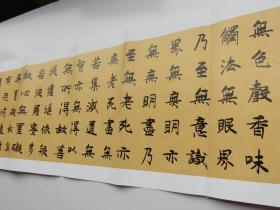 無色聲香味
觸法無眼界
乃至無意識
界無無明亦
無無明盡乃
至無老死亦
無老死盡無
苦集滅道無
智亦無得以
無所得故菩
若波羅蜜多
故心無罣礙